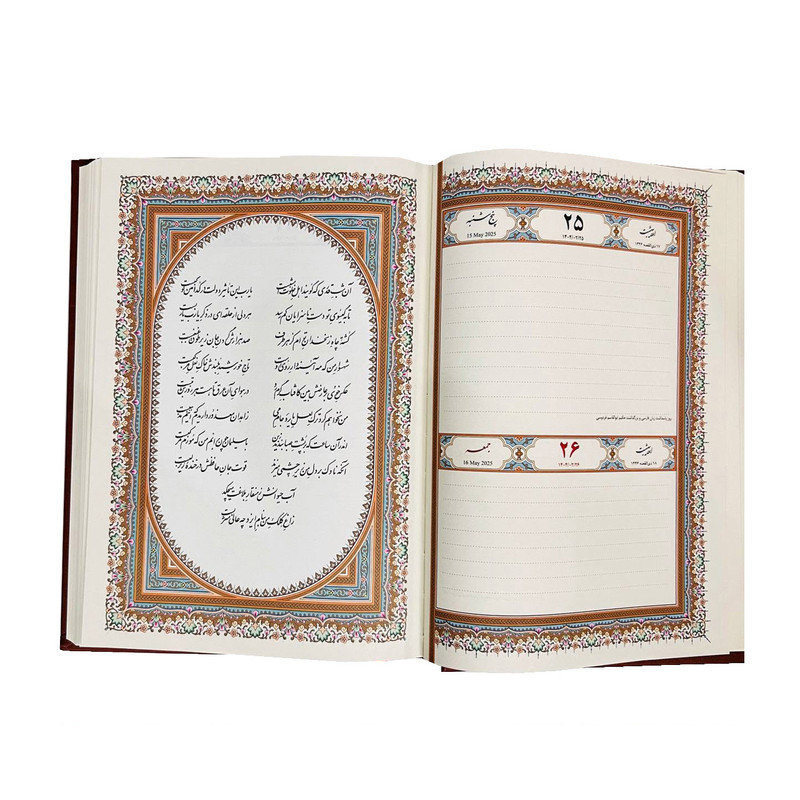 آن شب قدری که گویند اهل خلوت امشب است یارب این تأثیر دولت در کدامین کوکب است
تا به گیسوی تو دست ناسزایان کم رسد هر دلی از حلقه‌ای در ذکر یارب یارب است
کشته چاه زنخدان توام کز هر طرف صد هزارش گردن جان زیر طوق غبغب است
شهسوار من که مه آینه دار روی اوست تاج خورشید بلندش خاک نعل مرکب است
عکس خوی بر عارضش بین کافتاب گرم رو در هوای آن عرق تا هست هر روزش تب است
من نخواهم کرد ترک لعل یار و جام می زاهدان معذور داریدم که اینم مذهب است
اندر آن ساعت که بر پشت صبا بندند زین با سلیمان چون برانم من که مورم مرکب است
آنکه ناوک بر دل من زیر چشمی می‌زند قوت جان حافظش در خنده زیر لب است
آب حیوانش ز منقار بلاغت میچکد
زاغ کلک من بنام ایزد چه عالی مشرب است
اردیبهشت ۲۵ پنج شنبه
۱۷ ذی القعده ۱۴۴۶ ۱۴۰۴/۰۲/۲۵ 15 May 2025
روز پاسداشت زبان فارسی و بزرگداشت حکیم ابوالقاسم فردوسی
اردیبهشت ۲۶ جمعه
۱۸ ذی القعده ۱۴۴۶ ۱۴۰۴/۰۲/۲۶ 16 May 2025